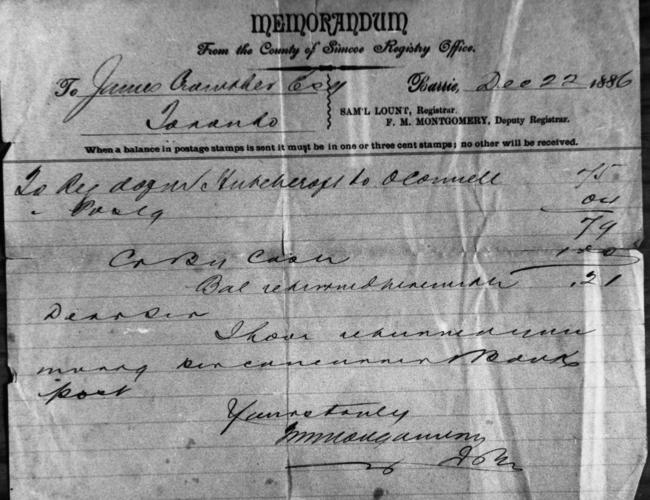 MEMORANDUM
From the County of Simcoe Registry Office.
To James Crowther Esq
Barrie, Dec 22 1886
Toronto
SAM'L LOUNT, Registrar.
F. M. MONTGOMERY, Deputy Registrar.
When a balance in postage stamps is sent it must be in one or three cent stamps; no other will be received.
To Reg Hutchcroft to OConnell 75
" Postg 04
79
Cr By Cash 1.00
Bal returned herewith .21
Dear Sir
I have returned you
Book
post
Yours truly
FMMontgomery